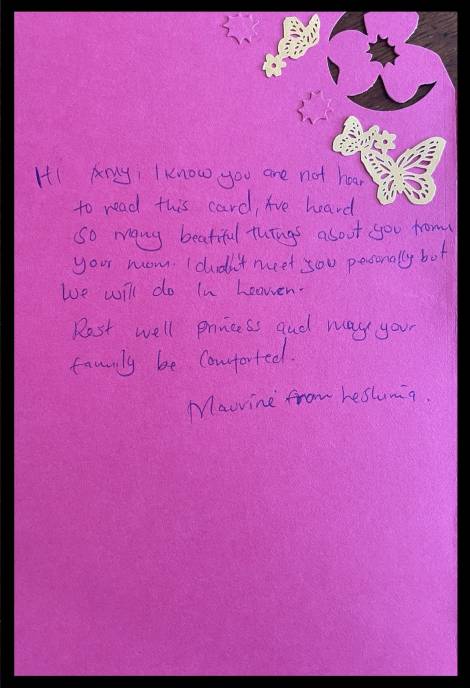 Hi Amy, I know you are not hear
to read this card, I've heard
so many beatiful things about you from
your mom. I dudn't meet you personally but
We will do in heaven.
Rest well princess and may your
family be comforted.
Maurine from